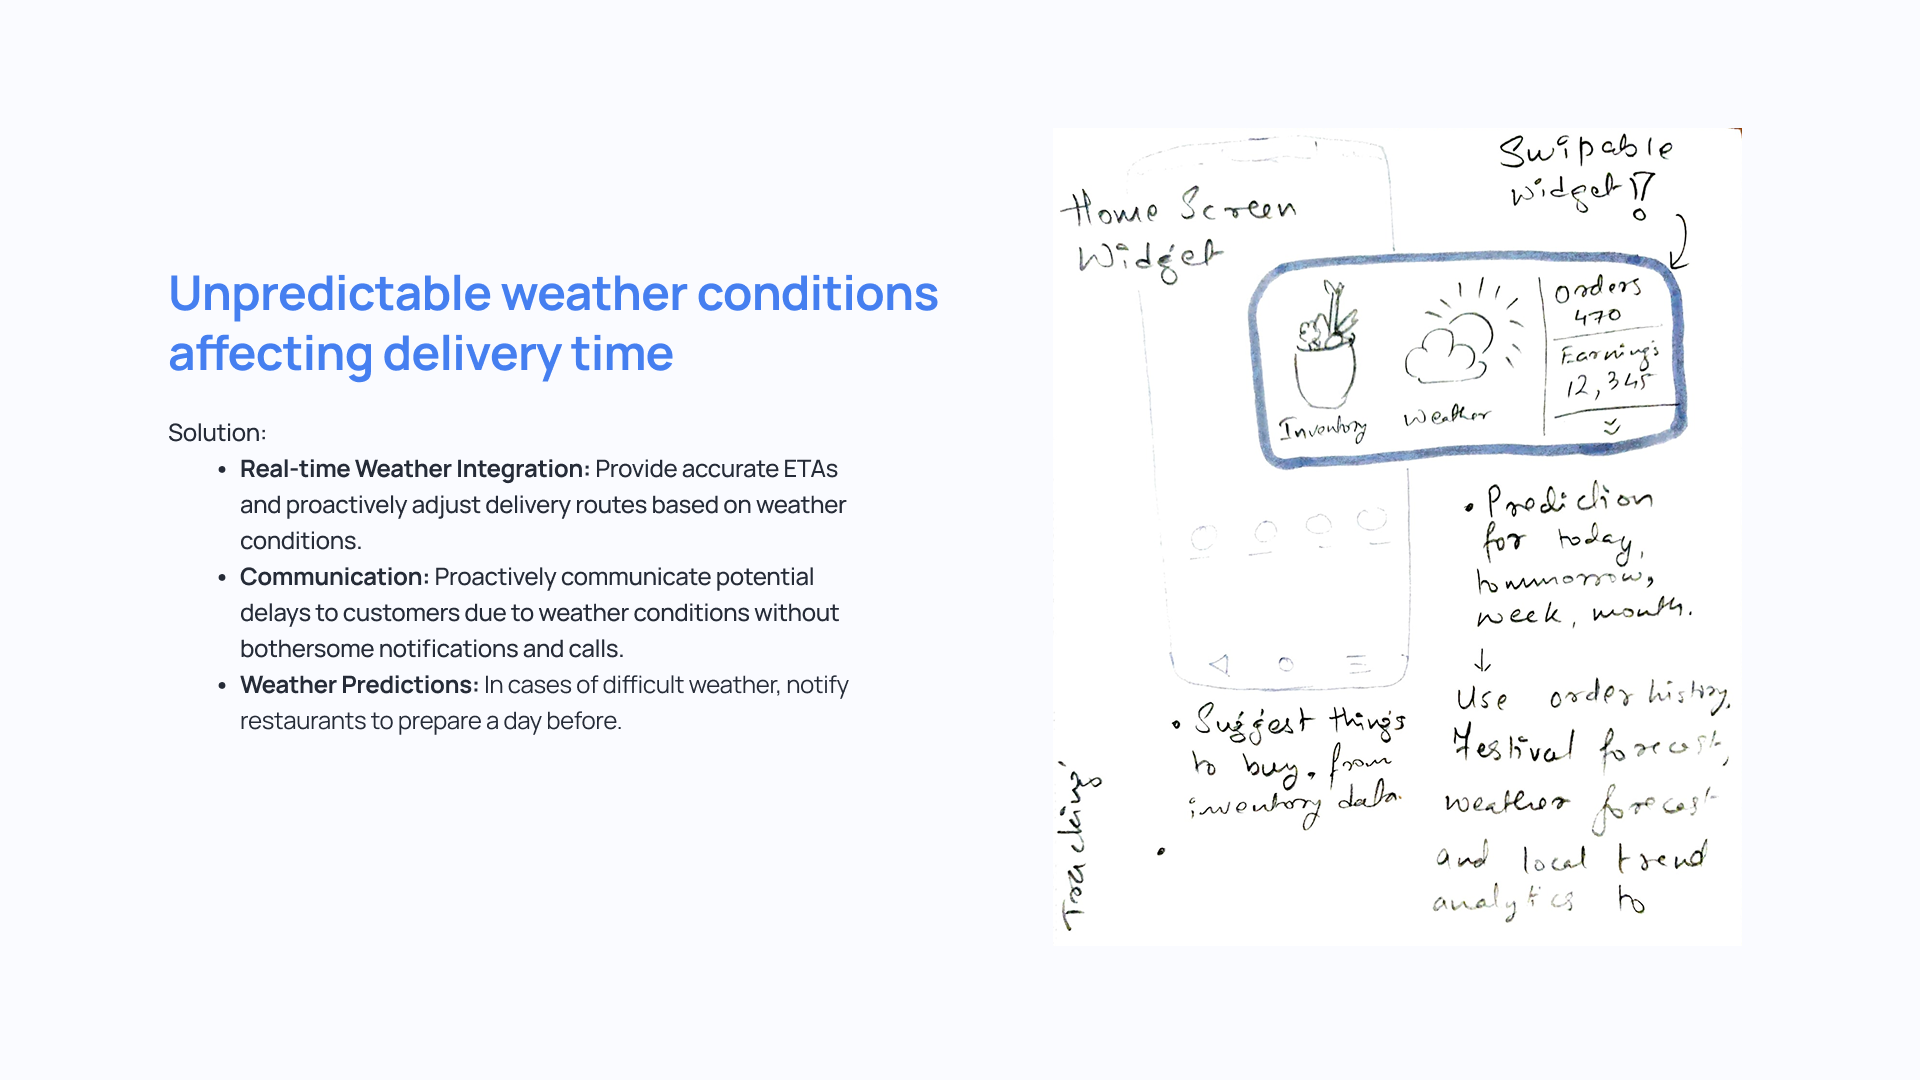 Unpredictable weather conditions
affecting delivery time
Solution:
• Real-time Weather Integration: Provide accurate ETAs
and proactively adjust delivery routes based on weather
conditions.
• Communication: Proactively communicate potential
delays to customers due to weather conditions without
bothersome notifications and calls.
• Weather Predictions: In cases of difficult weather, notify
restaurants to prepare a day before.
Swipable
widget!?
Home Screen
Widget
Inventory
Weather
Orders
470
Earnings
12,345
• Prediction
for today,
tommorrow,
week, month.
↓
Use order history,
Festival forecast,
weather forecast
and local trend
analytics to
• Suggest things
to buy, from
inventory data.
•
Tracking